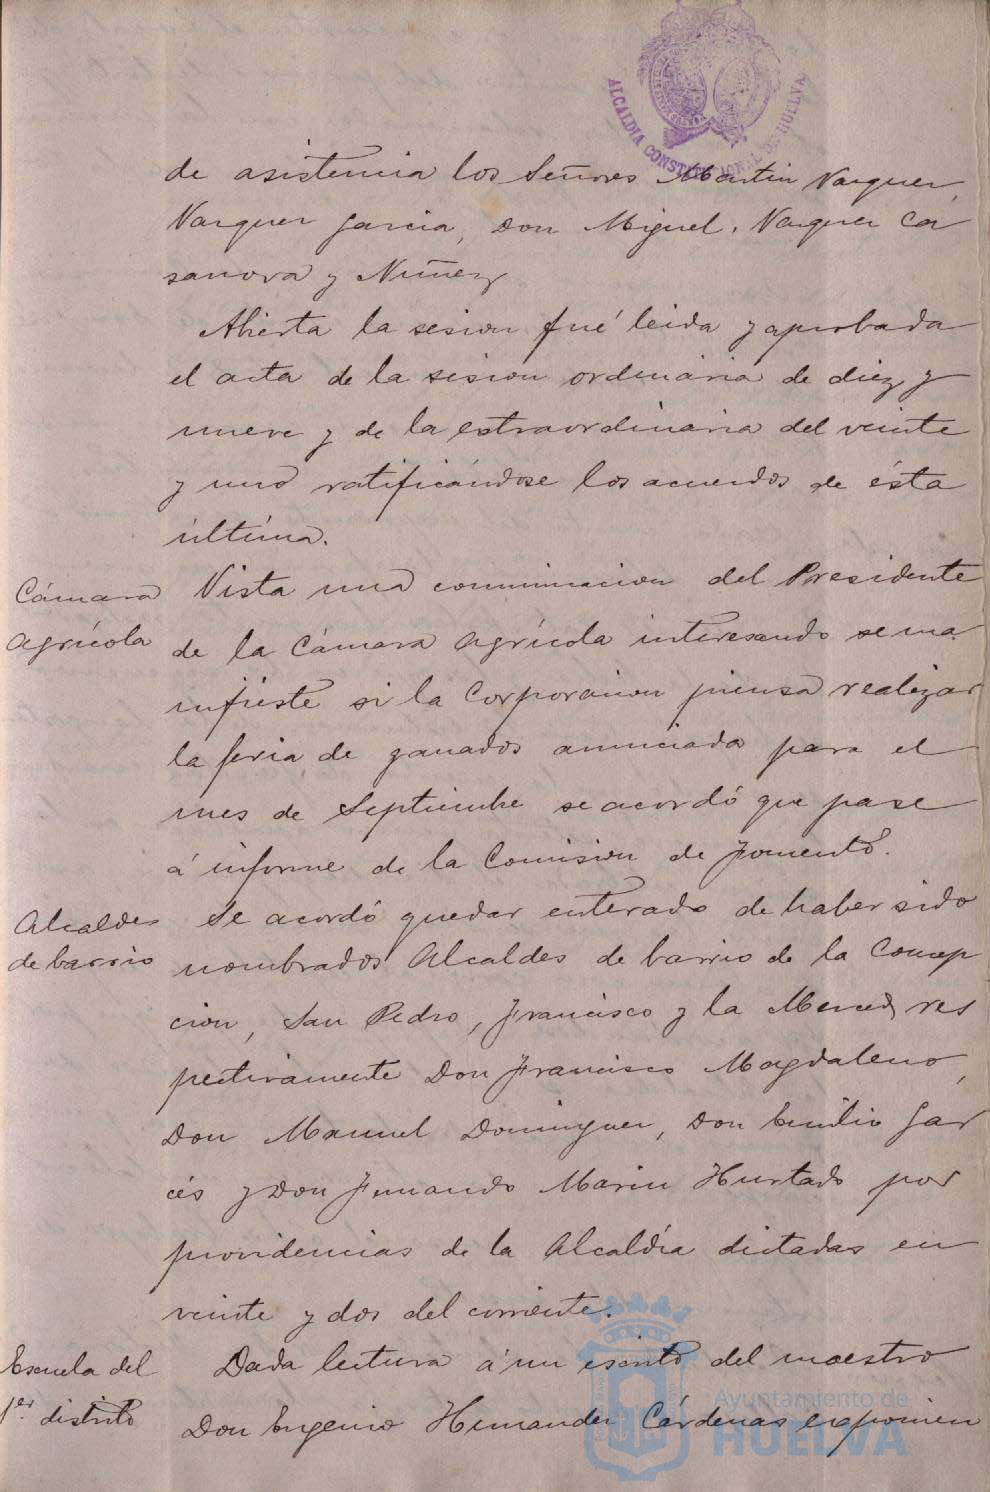 ALCALDIA CONSTITUCIONAL DE HUELVA
de asistencia los Señores Martin Vazquez,
Vazquez Garcia, Don Miguel, Vazquez Ca
sanova y Nuñez
Abierta la sesion fué leida y aprobada
el acta de la sesion ordinaria de diez y
nueve y de la extraordinaria del veinte
y uno ratificándose los acuerdos de ésta
última.
Cámara
Agrícola
Vista una comunicacion del Presidente
de la Cámara Agrícola interesando se ma
nifieste si la Corporacion piensa realizar
la feria de ganados anunciada para el
mes de Septiembre se acordó que pase
á informe de la Comision de Fomento.
Alcaldes
de barrio
Se acordó quedar enterado de haber sido
nombrados Alcaldes de barrio de la Concep
cion, San Pedro, Francisco y la Merced, res
pectivamente Don Francisco Magdaleno,
Don Manuel Dominguez, Don Emilio Gar
cés y Don Fernando Marin Hurtado por
providencias de la Alcaldía dictadas en
veinte y dos del corriente.
Escuela del
1er distrito
Dada lectura á un escrito del maestro
Don Eugenio Hernandez Cárdenas exponien
Ayuntamiento de
HUELVA